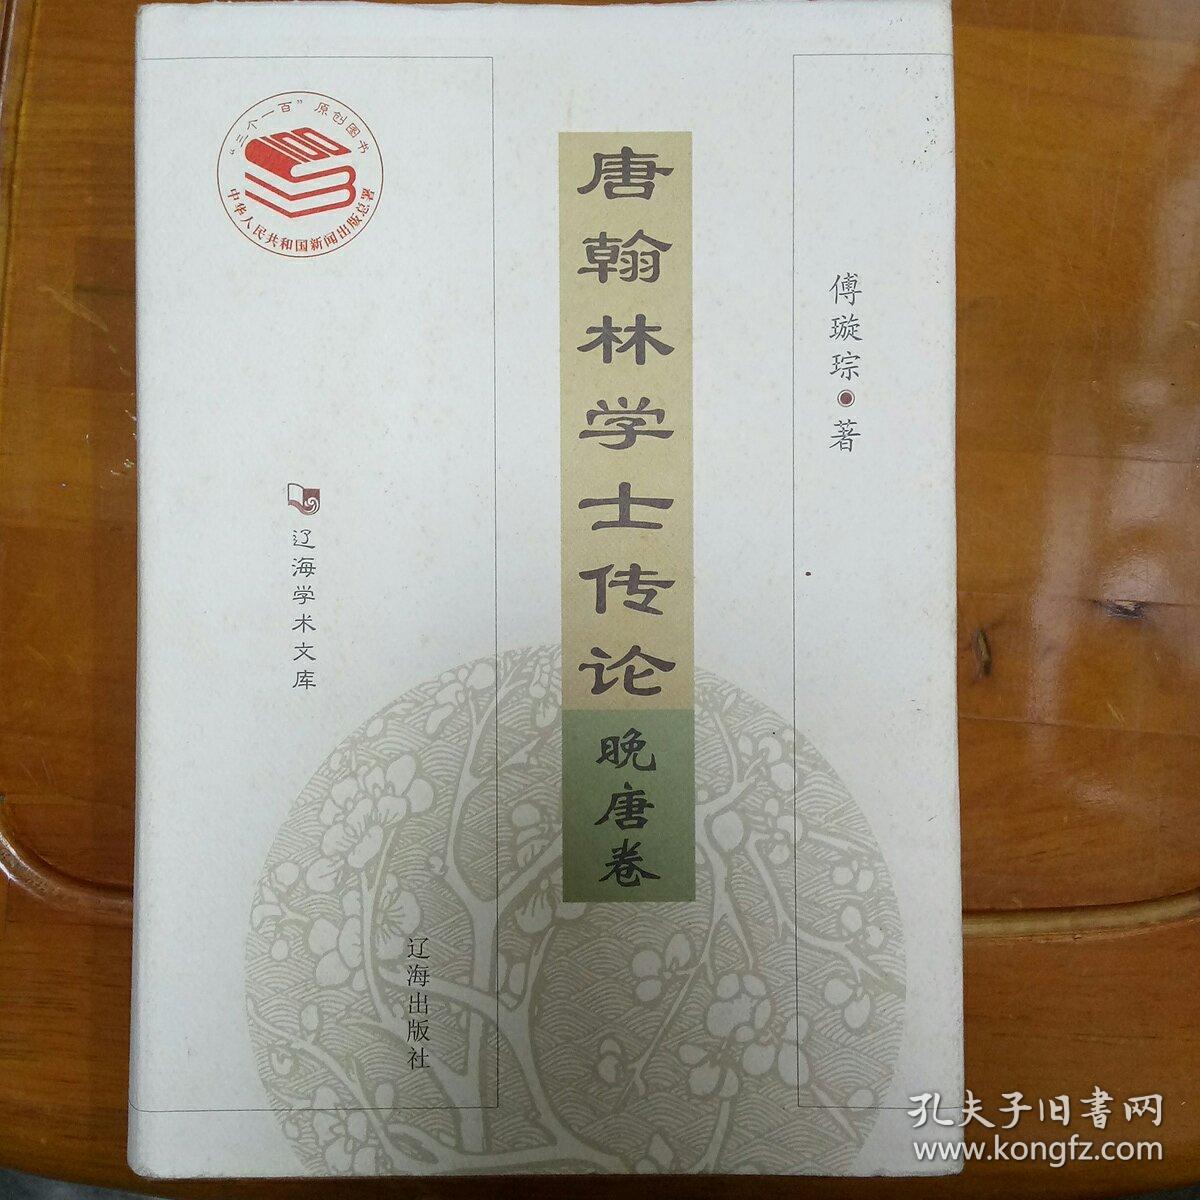 “三个一百”原创图书
100
中华人民共和国新闻出版总署
唐翰林学士传论
晚唐卷
傅璇琮 著
辽海学术文库
辽海出版社
孔夫子旧書网
www.kongfz.com